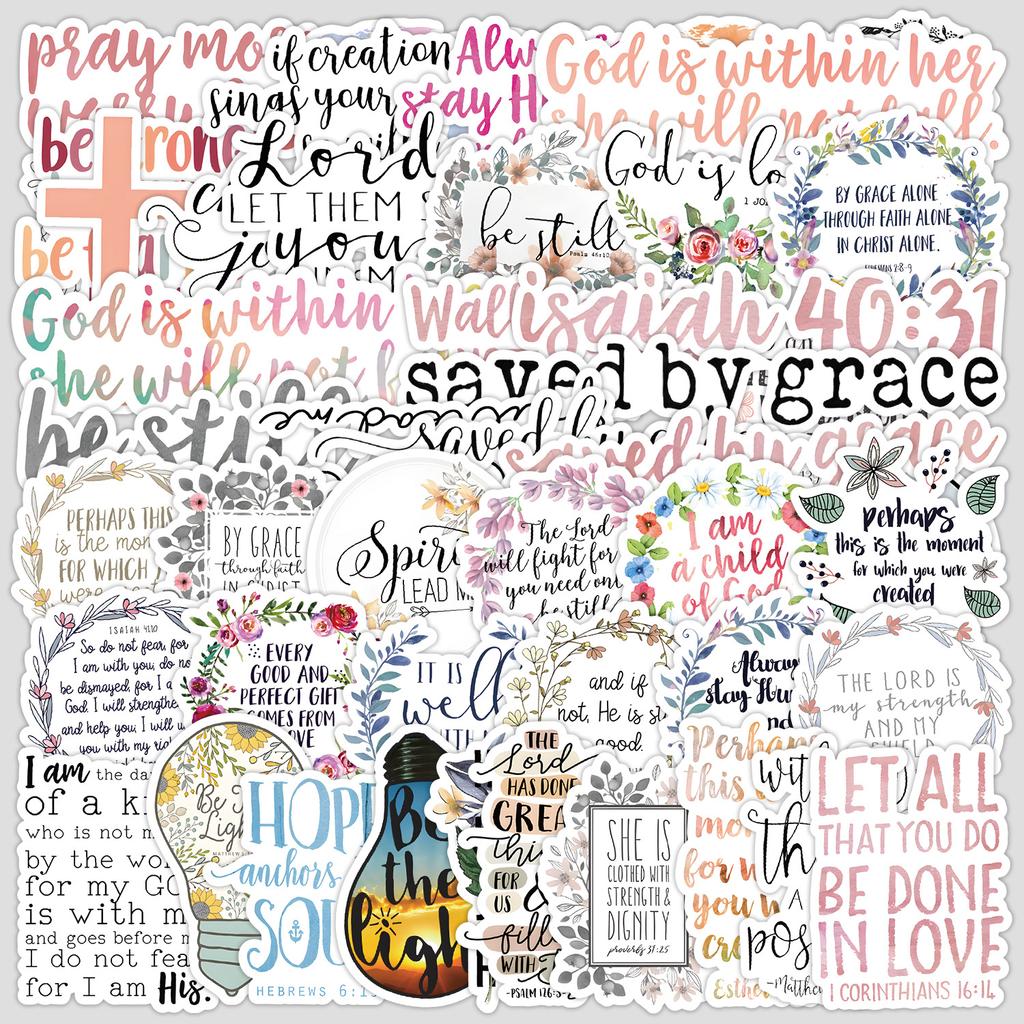 pray mo
if creation
sings your
Alw
stay H
God is within her
she will not fall.
be
Lord
LET THEM
you
be still
Psalm 46:10
God is lo
1 JO
BY GRACE ALONE
THROUGH FAITH ALONE
IN CHRIST ALONE.
EPHESIANS 2:8-9
be
God is within
she will not
isaiah 40:31
saved by grace
be sti
lead me
saved by
saved by grace
PERHAPS THIS
IS THE MOM
FOR WHICH
WERE
BY GRACE
through faith
IN CHRIST
Spiri
LEAD M
The Lord
will fight for
you need onl
be still
I am
a child
of God
perhaps
this is the moment
for which you were
created
ISAIAH 41:10
So do not fear, for
I am with you; do no
be dismayed, for I a
God. I will strengthe
and help you; I will u
you with my rig
EVERY
GOOD AND
PERFECT GIFT
COMES FROM
OVE
IT IS
well
WITH
and if
not, He is s
good.
Always
stay Hu
nd
THE LORD IS
my strength
AND MY
SHIELD
I am the da
of a k
who is not m
by the wo
for my GO
is with m
and goes before m
I do not fea
for I am His.
Be
Ligh
MATTHEW
HOP
anchors
SOU
HEBREWS 6:1
Be
the
light
THE
Lord
HAS DONE
GREA
thi
FOR
US &
fill
WITH
-PSALM 126:3-
SHE IS
CLOTHED WITH
STRENGTH &
DIGNITY
proverbs 31:25
Perhap
this
mo
for w
you w
cre
Esthe
wit
th
A
pos
-Matthe
LET ALL
THAT YOU DO
BE DONE
IN LOVE
1 CORINTHIANS 16:14